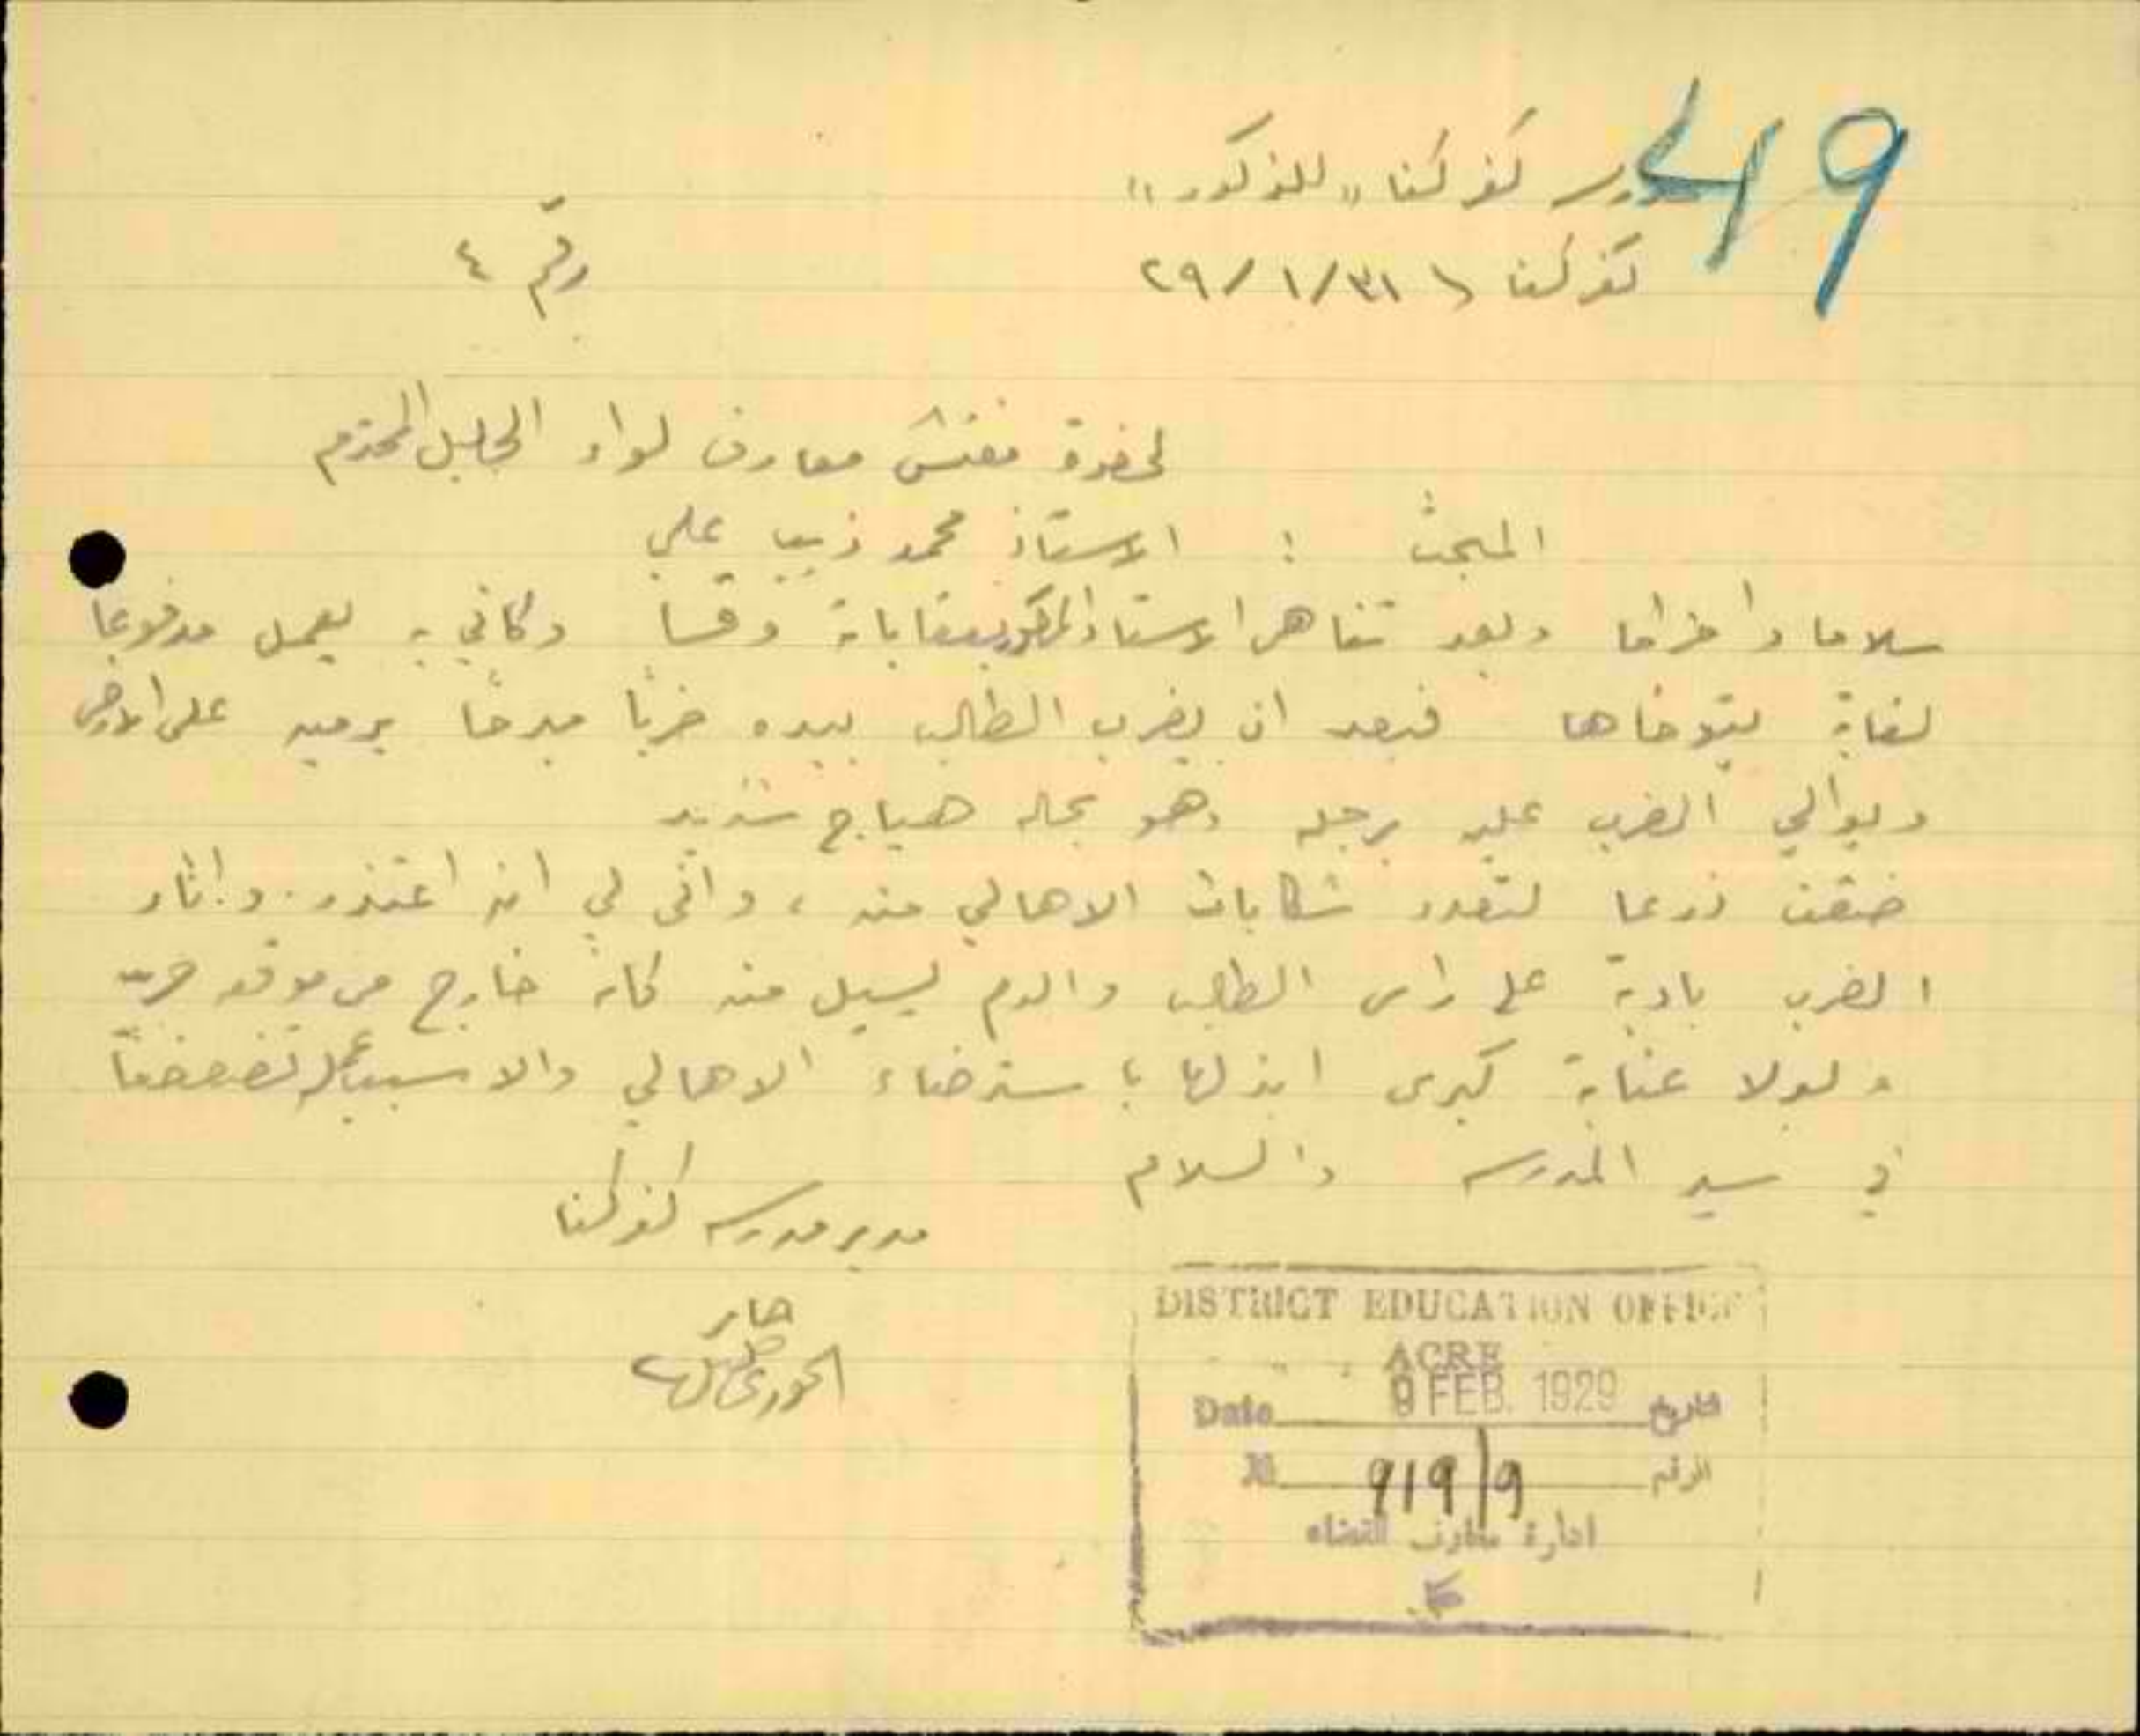 49
مدرسة كفركنا "للذكور"
كفركنا في ٣١/١/٢٩
رقم ٤
لحضرة مفتش معارف لواء الجليل المحترم
المبحث : الاستاذ محمد ذيب علي
سلاما واحتراما وبعد تناهى الاستاذ المذكور بعقاباته وقسا وكاني به يعمل مدفوعا
لغاية يتوخاها فبعد ان يضرب الطالب بيده ضربًا مبرحًا يرميه على الارض
ويوالي الضرب عليه برجله وهو بحالة هياج شديد
ضقت ذرعا لتعدد شكايات الاهالي منه ، وانى لي ان اعتذر . واثار
الضرب بادية على راس الطالب والدم يسيل منه كانه خارج من موقعة حرب
ولولا عناية كبرى ابذلها باسترضاء الاهالي والا سبب عمله تضعضعًا
في سير المدرسة والسلام
مدير مدرسة كفركنا
الخوري
DISTRICT EDUCATION OFFICE
ACRE
Date 9 FEB. 1929 تاريخ
No 919/9 الرقم
ادارة معارف القضاء